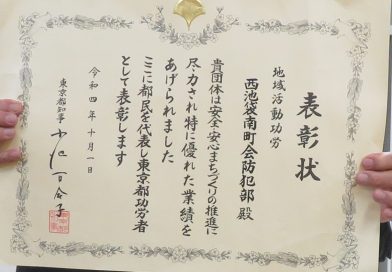 表彰状
地域活動功労
西池袋南町会防犯部 殿
貴団体は安全・安心まちづくりの推進に
尽力され特に優れた業績を
あげられました
ここに都民を代表し東京都功労者
として表彰します
令和四年十月一日
東京都知事 小池百合子